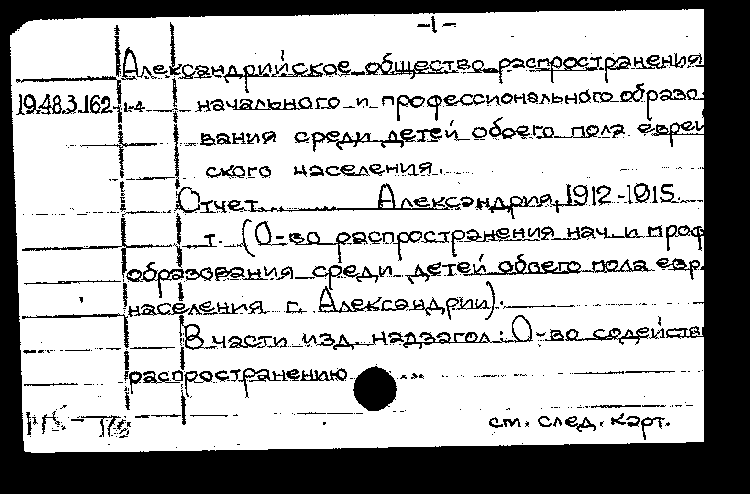 -1-
Александрийское общество распространения
19.48.3.162 1-4 начального и профессионального образо-
вания среди детей обоего пола еврей
ского населения.
Отчет... ... Александрия, 1912-1915.
т. (О-во распространения нач. и проф
образования среди детей обоего пола евр.
населения г. Александрии).
В части изд. надзагол: О-во содейств
распространению ...
см. след. карт.